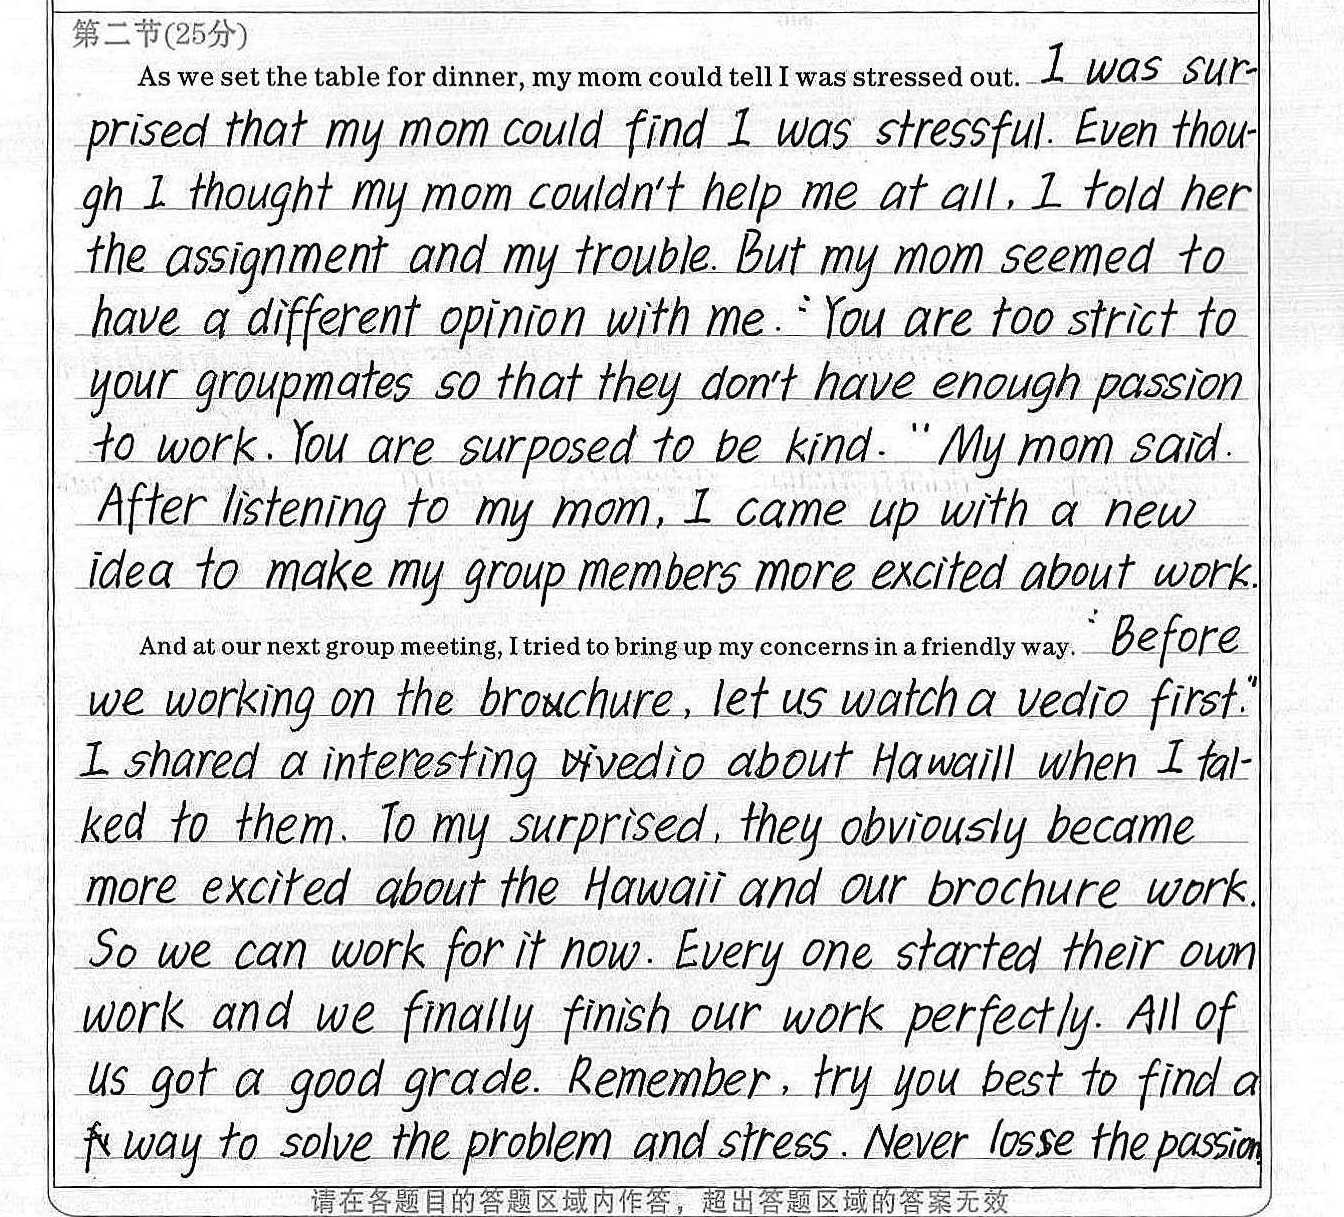 第二节(25分)
As we set the table for dinner, my mom could tell I was stressed out. I was sur-
prised that my mom could find I was stressful. Even thou-
gh I thought my mom couldn't help me at all, I told her
the assignment and my trouble. But my mom seemed to
have a different opinion with me. "You are too strict to
your groupmates so that they don't have enough passion
to work. You are surposed to be kind." My mom said.
After listening to my mom, I came up with a new
idea to make my group members more excited about work.
And at our next group meeting, I tried to bring up my concerns in a friendly way. "Before
we working on the brouchure, let us watch a vedio first."
I shared a interesting vedio about Hawaill when I tal-
ked to them. To my surprised, they obviously became
more excited about the Hawaii and our brochure work.
So we can work for it now. Every one started their own
work and we finally finish our work perfectly. All of
us got a good grade. Remember, try you best to find a
way to solve the problem and stress. Never losse the passion
请在各题目的答题区域内作答，超出答题区域的答案无效